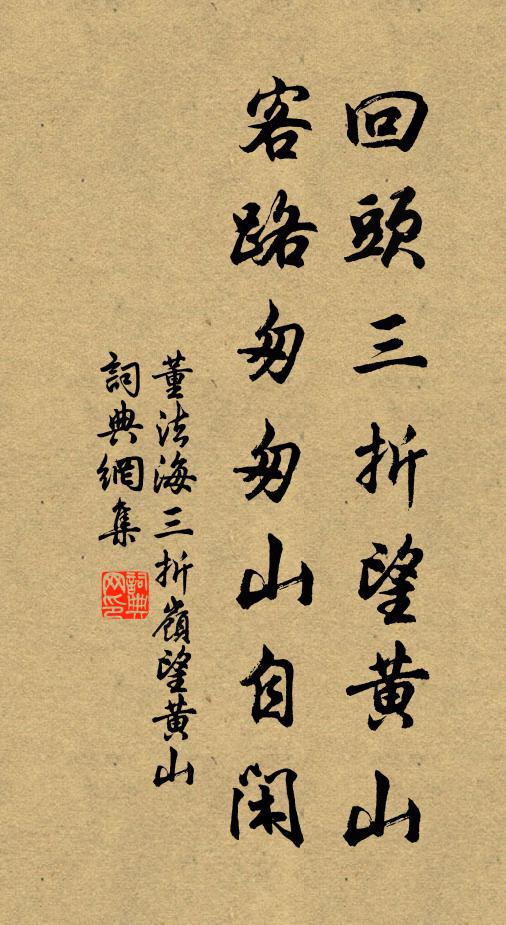 回頭三折望黄山
客路匆匆山自閑
董法海三折嶺望黄山
詞典網集
詞典
网印